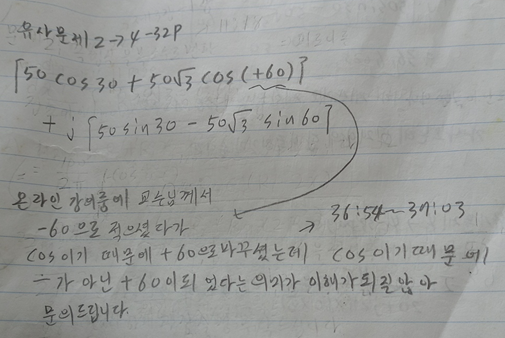 유사문제 2→4-32P
[50 cos 30 + 50√3 cos (+60)]
+ j [50 sin 30 - 50√3 sin 60]
온라인 강의중에 교수님께서
-60으로 적으셨다가 → 36:54~37:03
cos이기 때문에 +60으로바꾸셨는데 cos이기때문에
-가 아닌 +60이되었다는 의미가 이해가되질않아
문의드립니다.